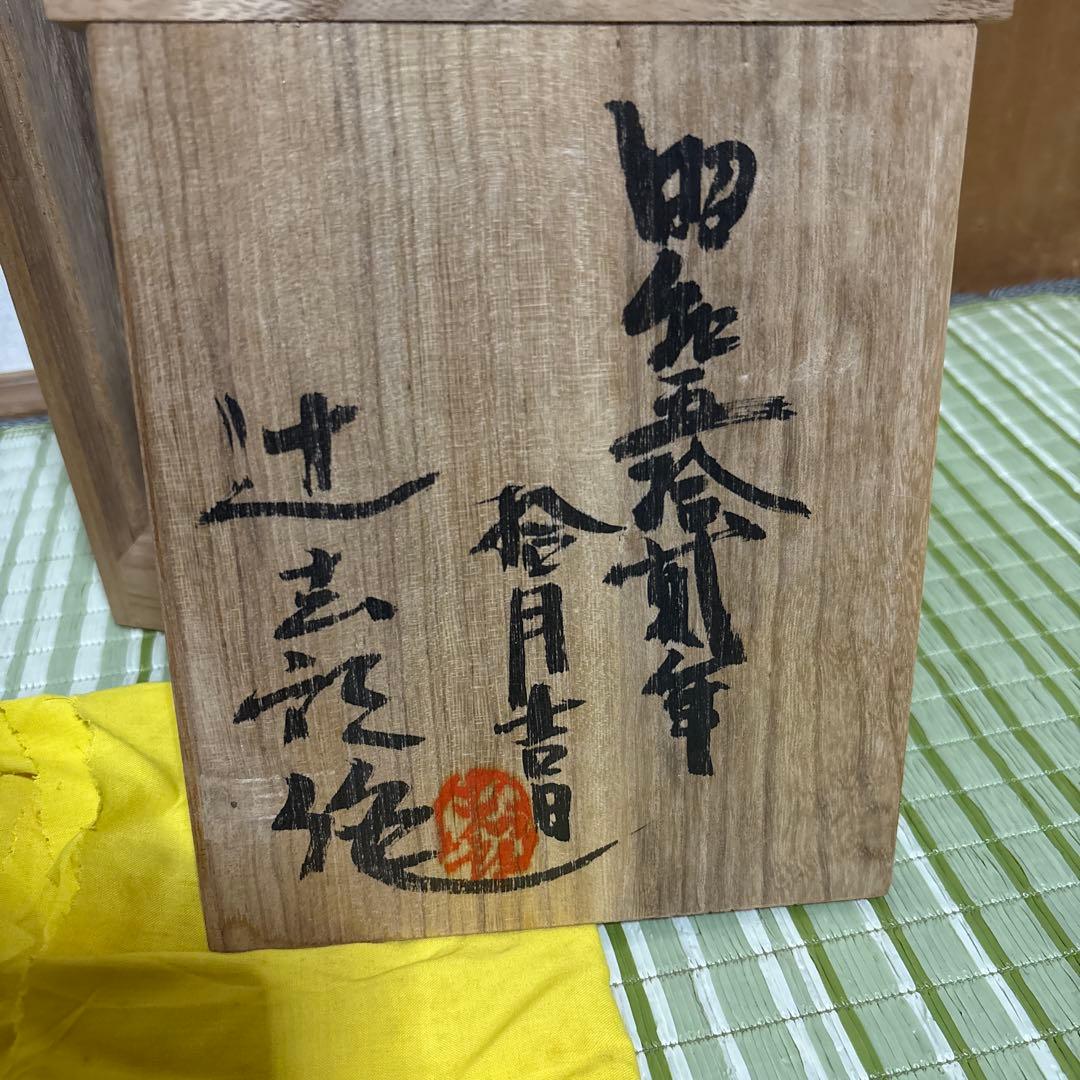 昭和五拾弐年
拾月吉日
辻志郎作